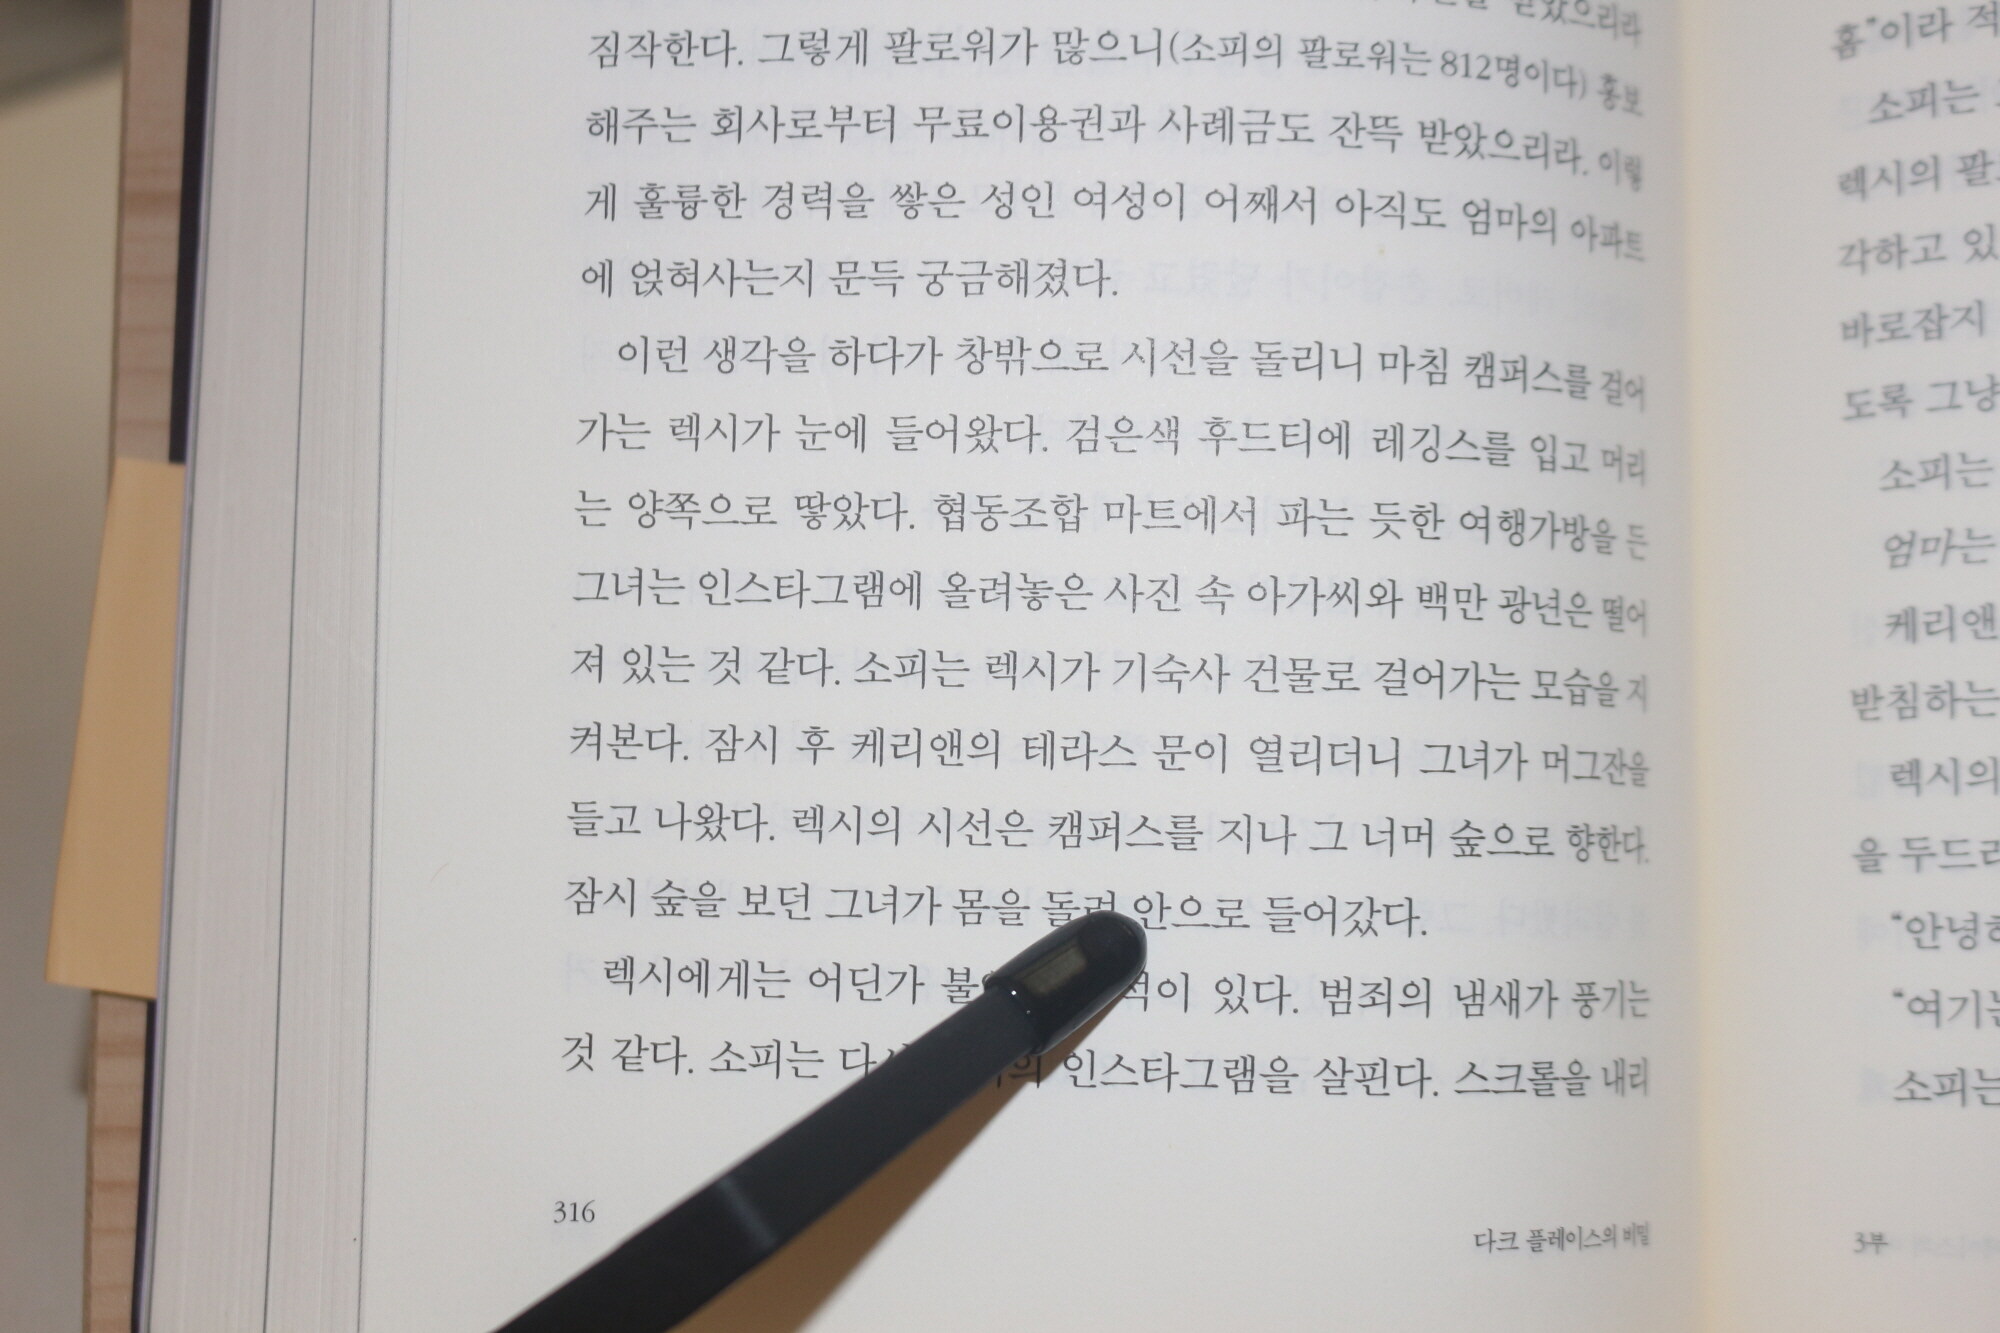 받았으리라
짐작한다. 그렇게 팔로워가 많으니(소피의 팔로워는 812명이다) 홍보
해주는 회사로부터 무료이용권과 사례금도 잔뜩 받았으리라. 이렇
게 훌륭한 경력을 쌓은 성인 여성이 어째서 아직도 엄마의 아파트
에 얹혀사는지 문득 궁금해졌다.
이런 생각을 하다가 창밖으로 시선을 돌리니 마침 캠퍼스를 걸어
가는 렉시가 눈에 들어왔다. 검은색 후드티에 레깅스를 입고 머리
는 양쪽으로 땋았다. 협동조합 마트에서 파는 듯한 여행가방을 든
그녀는 인스타그램에 올려놓은 사진 속 아가씨와 백만 광년은 떨어
져 있는 것 같다. 소피는 렉시가 기숙사 건물로 걸어가는 모습을 지
켜본다. 잠시 후 케리앤의 테라스 문이 열리더니 그녀가 머그잔을
들고 나왔다. 렉시의 시선은 캠퍼스를 지나 그 너머 숲으로 향한다.
잠시 숲을 보던 그녀가 몸을 돌려 안으로 들어갔다.
렉시에게는 어딘가 있다. 범죄의 냄새가 풍기는
것 같다. 소피는 인스타그램을 살핀다. 스크롤을 내리
316
다크 플레이스의 비밀
홈”이라
소피는
렉시의
각하고
바로잡지
도록 그냥
소피는
엄마는
케리앤
받침하는
렉시의
을
“여기는
소피는
3부